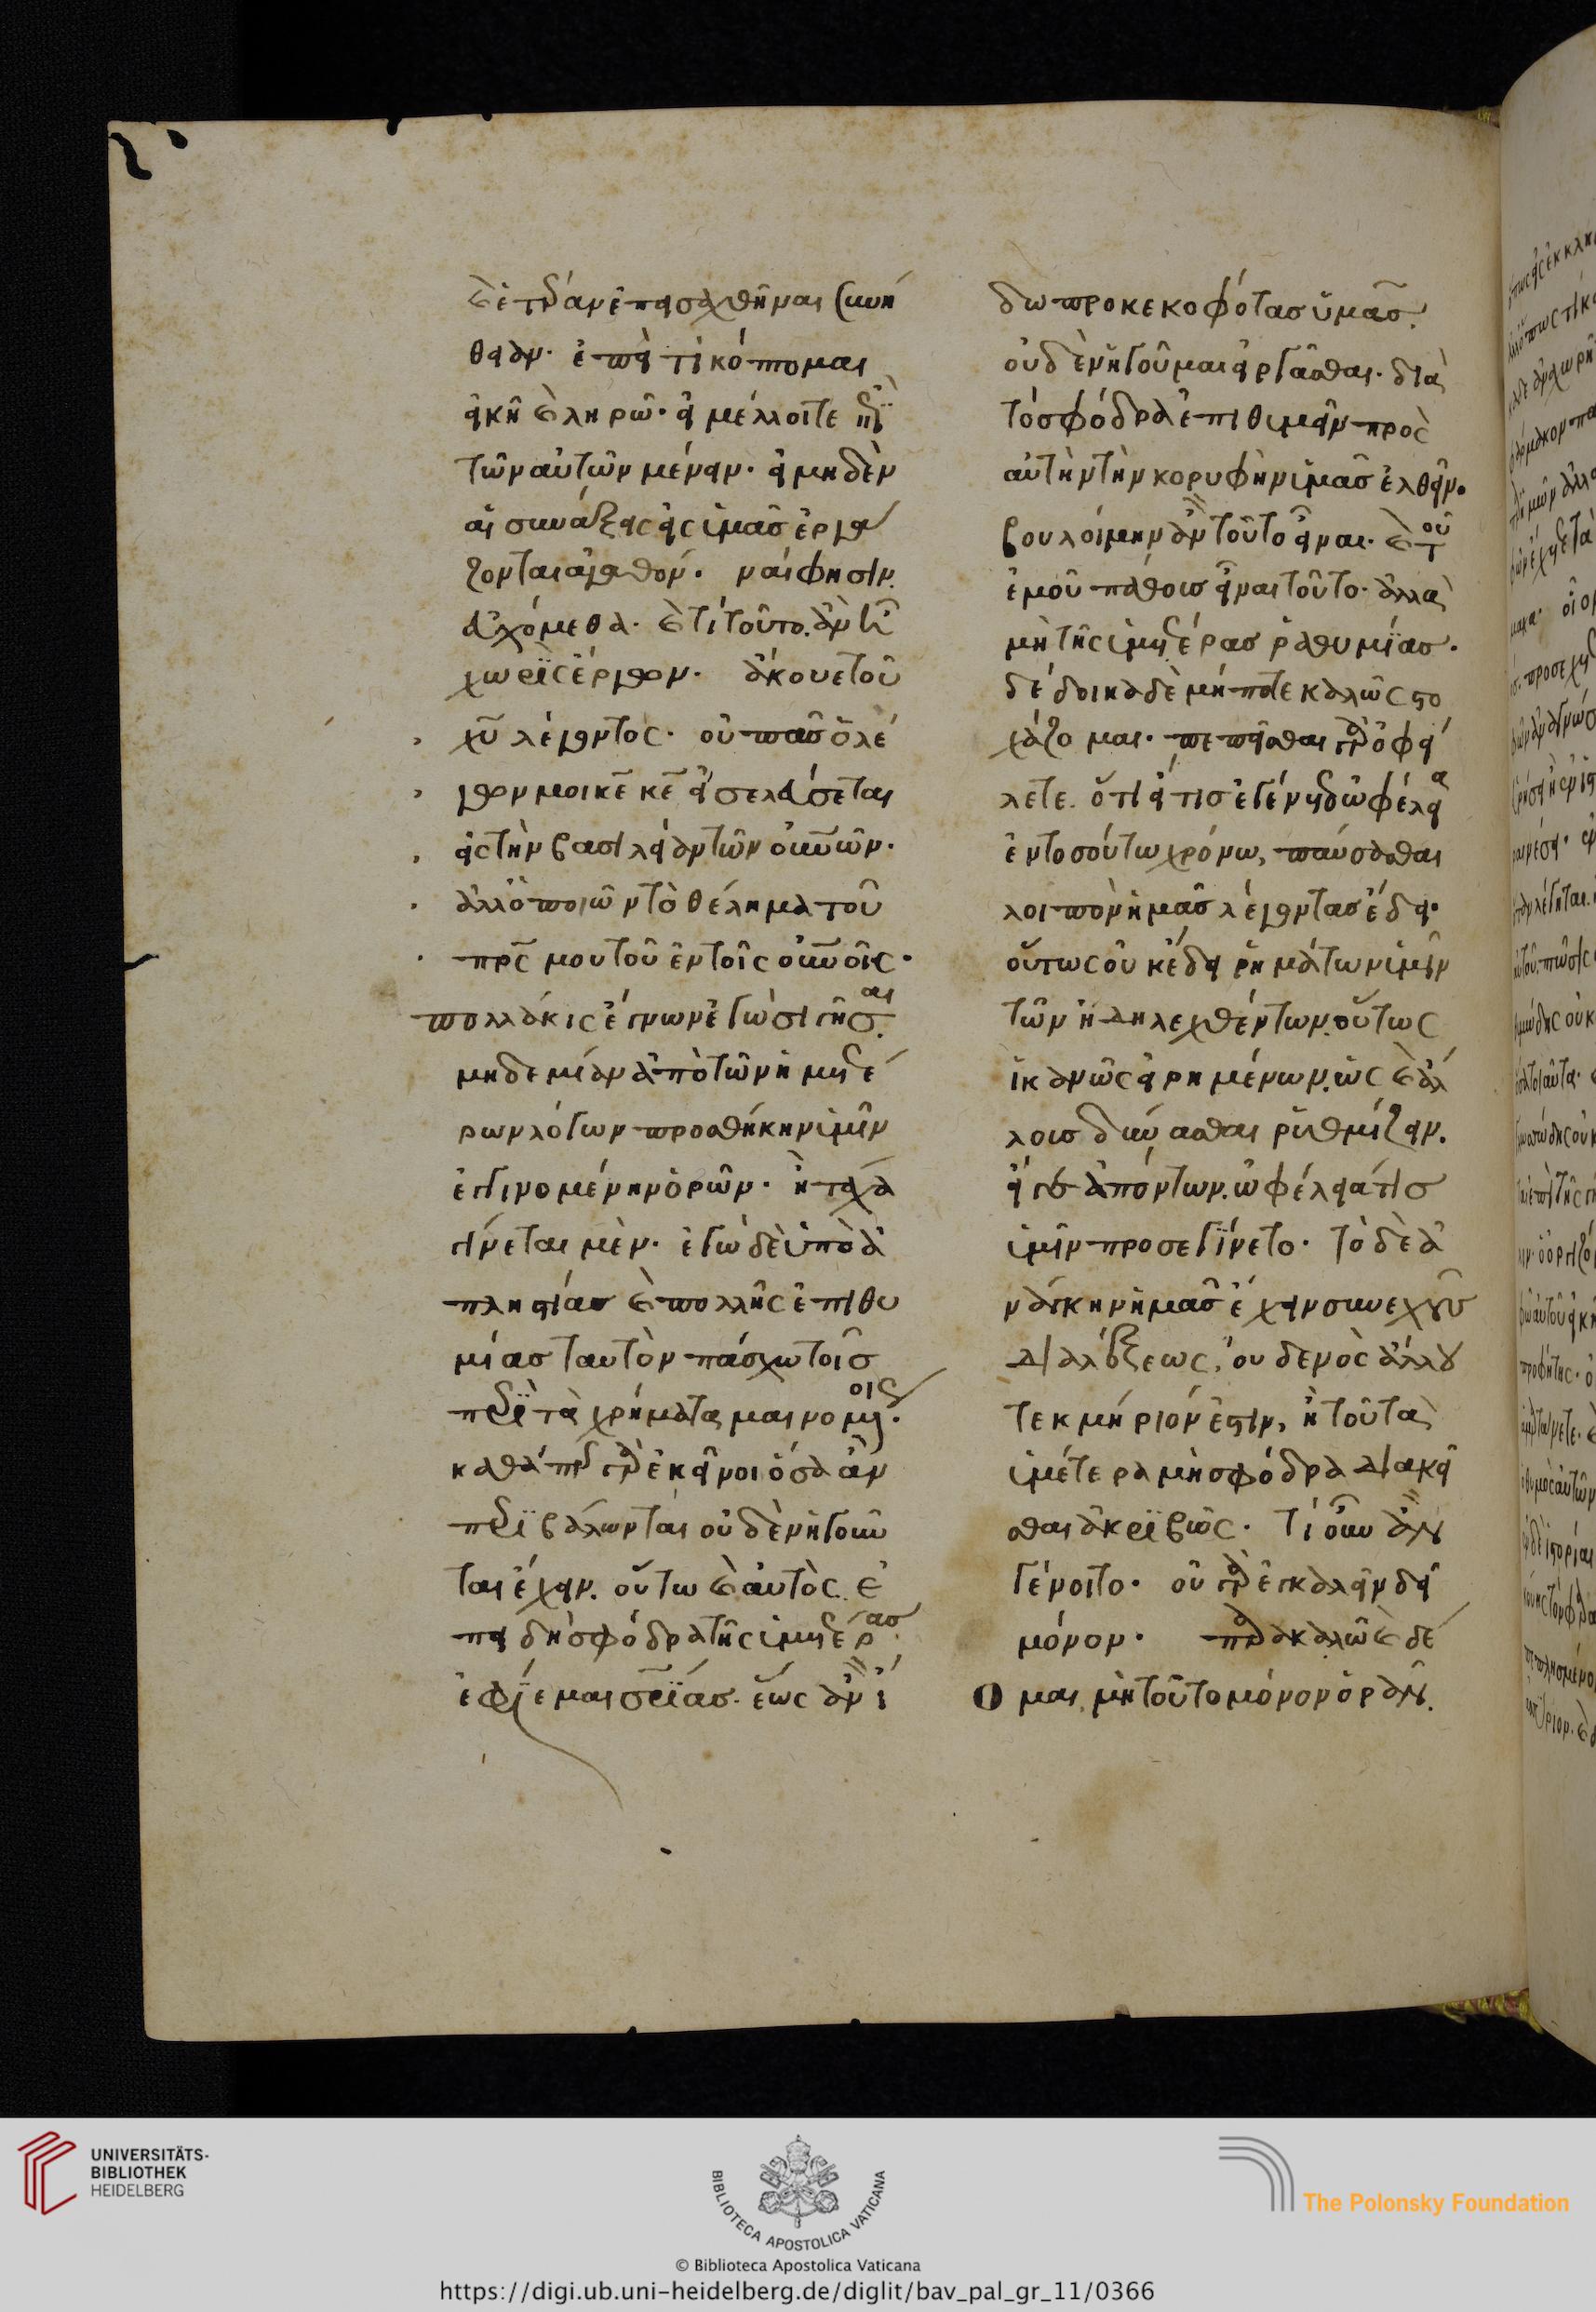 καὶ γὰρ ἀνεπαχθῆναι συνή
θειαν. ἐπεὶ τί κόπτομαι
εἰκῆ καὶ ληρῶ. εἰ μέλλοιτε ἐπὶ
τῶν αὐτῶν μένειν. εἰ μηδὲν
αἱ συνάξεις εἰς ἡμᾶς ἐργά
ζονται ἀγαθόν. ναί φησιν
εὐχόμεθα. καὶ τί τοῦτο. ἂν ᾖ
χωρὶς ἔργων. ἄκουε τοῦ
χῦ λέγοντος. οὐ πᾶς ὁ λέ
γων μοι κε κε εἰσελεύσεται
εἰς τὴν βασιλείαν τῶν οὐνῶν.
ἀλλ' ὁ ποιῶν τὸ θέλημα τοῦ
πρς μου τοῦ ἐν τοῖς οὐνοῖς.
πολλάκις ἔγνων ἐγὼ σιγῆσαι.
μηδεμίαν ἀπὸ τῶν ἡμετέ
ρων λόγων προσθήκην ὑμῖν
ἐγγινομένην ὁρῶν. ἢ τάχα
γίνεται μὲν. ἐγὼ δὲ ὑπὸ ἀ
πληστίας καὶ πολλῆς ἐπιθυ
μίας ταυτὸν πάσχω τοῖς
περὶ τὰ χρήματα μαινομένοις.
καθάπερ γὰρ ἐκεῖνοι ὅσα ἂν
περιβάλωνται οὐδὲν ἡγοῦν
ται ἔχειν. οὕτω καὶ αὐτὸς ἐ
πειδὴ σφόδρα τῆς ὑμετέρας
ἐφίεμαι σρίας. ἕως ἂν ἴ
δω προκεκοφότας ὑμᾶς.
οὐδὲν ἡγοῦμαι εἰργᾶσθαι. διὰ
τὸ σφόδρα ἐπιθυμεῖν πρὸς
αὐτὴν τὴν κορυφὴν ὑμᾶς ἐλθεῖν.
βουλοίμην ἂν τοῦτο εἶναι. καὶ τοῦ
ἐμοῦ πάθους εἶναι τοῦτο. ἀλλὰ
μὴ τῆς ὑμετέρας ῥαθυμίας.
δέδοικα δὲ μήποτε καλῶς στο
χάζομαι. πεπεῖσθαι γὰρ ὀφεί
λετε. ὅτι εἴ τις ἐγένετο ὠφέλεια
ἐν τοσούτω χρόνω, παύσασθαι
λοιπὸν ἡμᾶς λέγοντας ἔδει.
οὕτως οὐκ ἔδει ῥημάτων ὑμῖν
τῶν ἤδη λεχθέντων οὕτως
ἱκανῶς εἰρημένων, ὡς καὶ ἄλ
λους δύνασθαι ῥυθμίζειν.
εἴ γε ἀπόντων. ὠφέλειά τις
ὑμῖν προσεγίνετο. τὸ δὲ ἀ
νάγκην ἡμᾶς ἔχειν συνεχοῦς
διαλέξεως, οὐδενὸς ἄλλου
τεκμήριόν ἐστιν, ἢ τοῦ τὰ
ὑμέτερα μὴ σφόδρα διακεῖ
σθαι ἀκριβῶς. τί οὖν ἂν
γένοιτο. οὐ γὰρ ἐγκαλεῖν δεῖ
μόνον. παρακαλῶ καὶ δέ
ομαι μὴ τοῦτο μόνον ὁρᾶν.
UNIVERSITÄTS-
BIBLIOTHEK
HEIDELBERG
BIBLIOTECA APOSTOLICA VATICANA
© Biblioteca Apostolica Vaticana
The Polonsky Foundation
https://digi.ub.uni-heidelberg.de/diglit/bav_pal_gr_11/0366